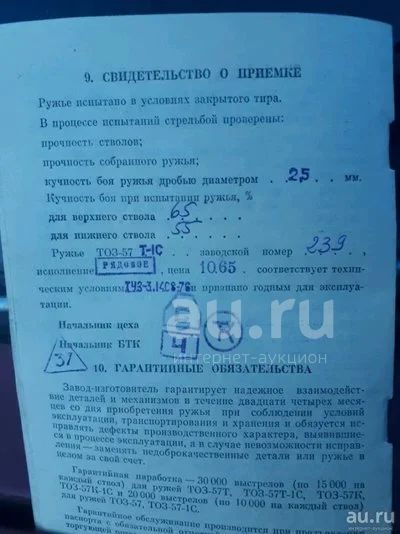 9. СВИДЕТЕЛЬСТВО О ПРИЕМКЕ
Ружье испытано в условиях закрытого тира.
В процессе испытаний стрельбой проверены:
прочность стволов;
прочность собранного ружья;
кучность боя ружья дробью диаметром . 2,5 . . мм.
Кучность боя при испытании ружья, %
для верхнего ствола . 65 . . .
для нижнего ствола . 55 . . .
Ружье ТОЗ-57 Т-1С . . заводской номер . 239 . ,
исполнение РЯДОВОЕ , цена 10,65 . соответствует техни-
ческим условиям ТУ3-3.1408-76 и признано годным для эксплуа-
тации.
Начальник цеха
Начальник БТК
4
31
au.ru
интернет-аукцион
10. ГАРАНТИЙНЫЕ ОБЯЗАТЕЛЬСТВА
Завод-изготовитель гарантирует надежное взаимодейст-
вие деталей и механизмов в течение двадцати четырех меся-
цев со дня приобретения ружья при соблюдении условий
эксплуатации, транспортирования и хранения и обязуется ис-
правлять дефекты производственного характера, выявившие-
ся в процессе эксплуатации, а в случае невозможности исправ-
ления — заменять недоброкачественные детали или ружье в
целом за свой счет.
Гарантийная наработка — 30 000 выстрелов (по 15 000 на
каждый ствол) для ружей ТОЗ-57Т, ТОЗ-57Т-1С, ТОЗ-57К,
ТОЗ-57К-1С и 20 000 выстрелов (по 10 000 на каждый ствол)
для ружей ТОЗ-57, ТОЗ-57-1С.
Гарантийное обслуживание производится при предъявлении
паспорта с обязательной
au.ru